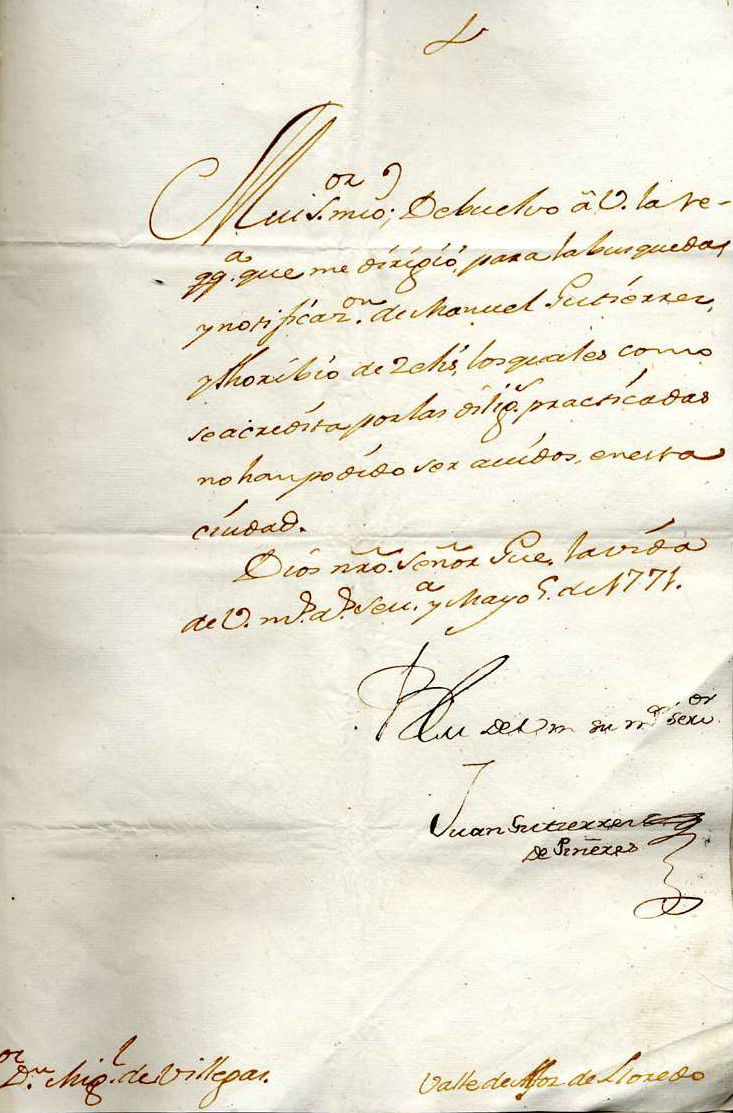 Mui S.or mio; Debuelvo â V. la re-
qq.a que me dirigió, para la busqueda,
y notificaz.on de Manuel Gutierrez,
y Thoribio de los quales como
se acredita por las dilig.s practicadas
no han podido ser avidos, en esta
ciudad.
Dios nr̃o. Señor Gue. la vida
de V. m.s a.s Sev.a y Mayo de 1771.
BLM de Vm su m.r serv.or
Juan Gutierrez
De Piñeres
or D.n Mig.l de Villegas.
Valle de Alfoz de Lloredo